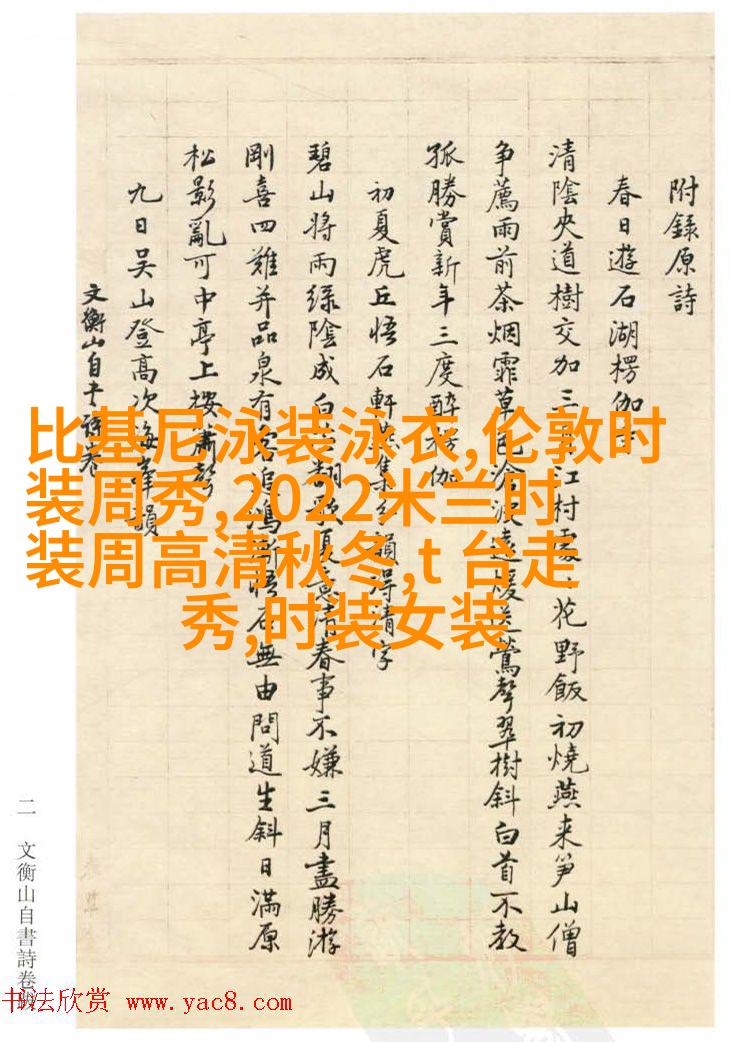 附錄原詩
春日遊石湖楞伽
清陰夾道樹交加三江村花野飯初燒燕来笋山僧
争薦雨前茶烟霏草色遠暖鶯聲翠樹斜白首不教
孤勝賞新年三度醉楞伽
初夏虎丘悟石軒燕集韻得清字
碧山将雨綠陰成白歌夏意清春事不嫌三月盡勝游
剛喜四難并品泉有客悟石無由問道生斜日滿原
松影亂可中亭上
九日吴山登高次海峰韻
文衡山自書詩卷
比基尼泳装泳衣,伦敦时
装周秀,2022米兰时
装周高清秋冬,t 台走
秀,时装女装
二 文衡山自書詩卷
书法欣赏 www.yac8.com